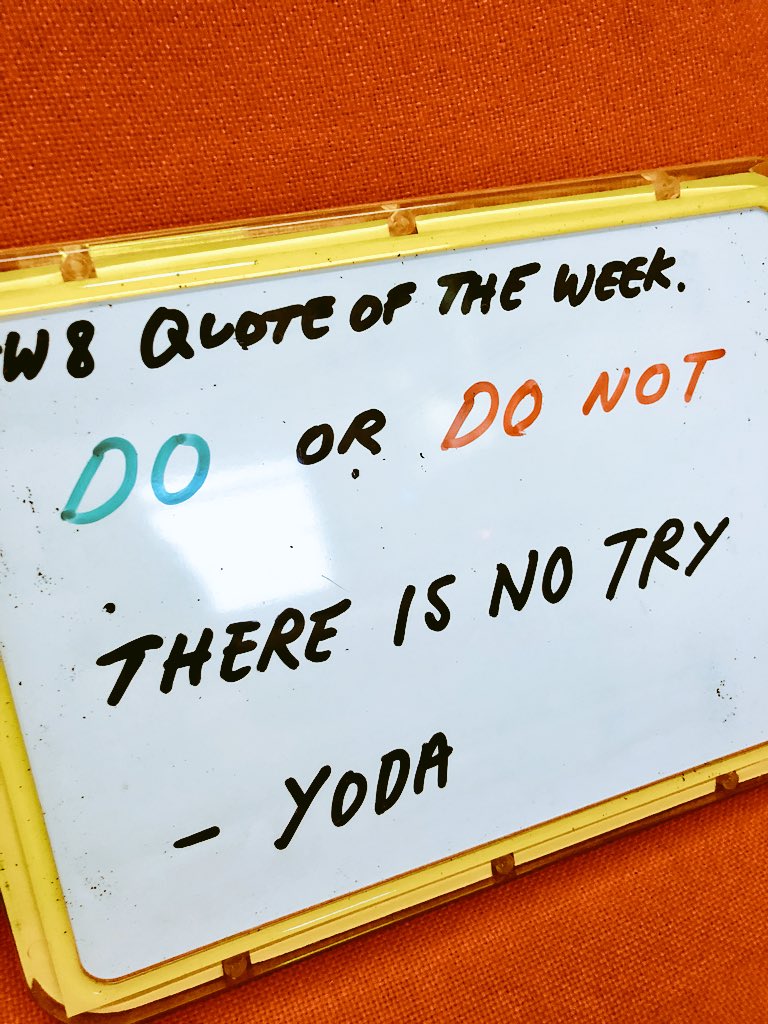 W8 QUOTE OF THE WEEK.
DO OR DO NOT
THERE IS NO TRY
- YODA